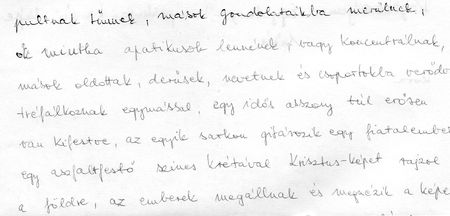 pultnak tűnnek, mások gondolataikba merülnek,
ők mintha apatikusok lennének, vagy koncentrálnak,
mások oldottak, derűsek, nevetnek és csoportokba verődve
tréfálkoznak egymással, egy idős asszony túl erősen
van kifestve, az egyik sarkon gitározik egy fiatalember
egy aszfaltfestő színes krétával Krisztus-képet rajzol
a földre, az emberek megállnak és megnézik a képe